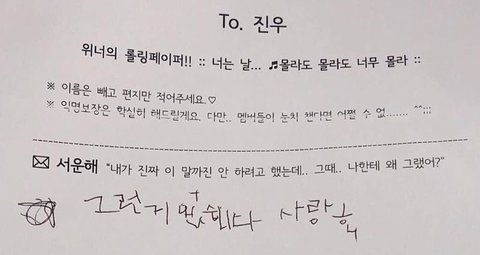 To. 진우
위너의 롤링페이퍼!! :: 너는 날... ♬몰라도 몰라도 너무 몰라 ::
※ 이름은 빼고 편지만 적어주세요.♡
※ 익명보장은 확실히 해드릴게요. 다만.. 멤버들이 눈치 챈다면 어쩔 수 없....... ^^;;;
✉ 서운해 "내가 진짜 이 말까진 안 하려고 했는데.. 그때.. 나한테 왜 그랬어?"
그런거 없습니다 사랑해